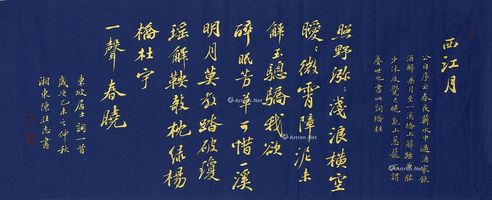 西江月
公自序云春夜蘄水中過酒家飲
酒醉乘月至一溪橋上解鞍曲肱
少休及覺已曉亂山葱蘢不謂
塵世也書此詞橋柱
照野瀰〻淺浪橫空
曖〻微霄障泥未
解玉驄驕我欲
醉眠芳草可惜一溪
明月莫教踏破瓊
瑤解鞍敧枕綠楊
橋杜宇
一聲春曉
東坡居士詞一首
歲次乙未之仲秋
湘東陳 書
Artron.Net